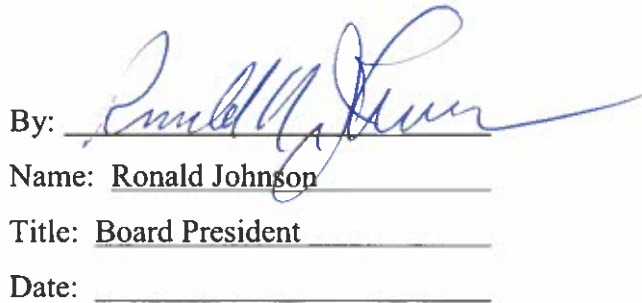 By: Ronald Johnson
Name: Ronald Johnson
Title: Board President
Date: